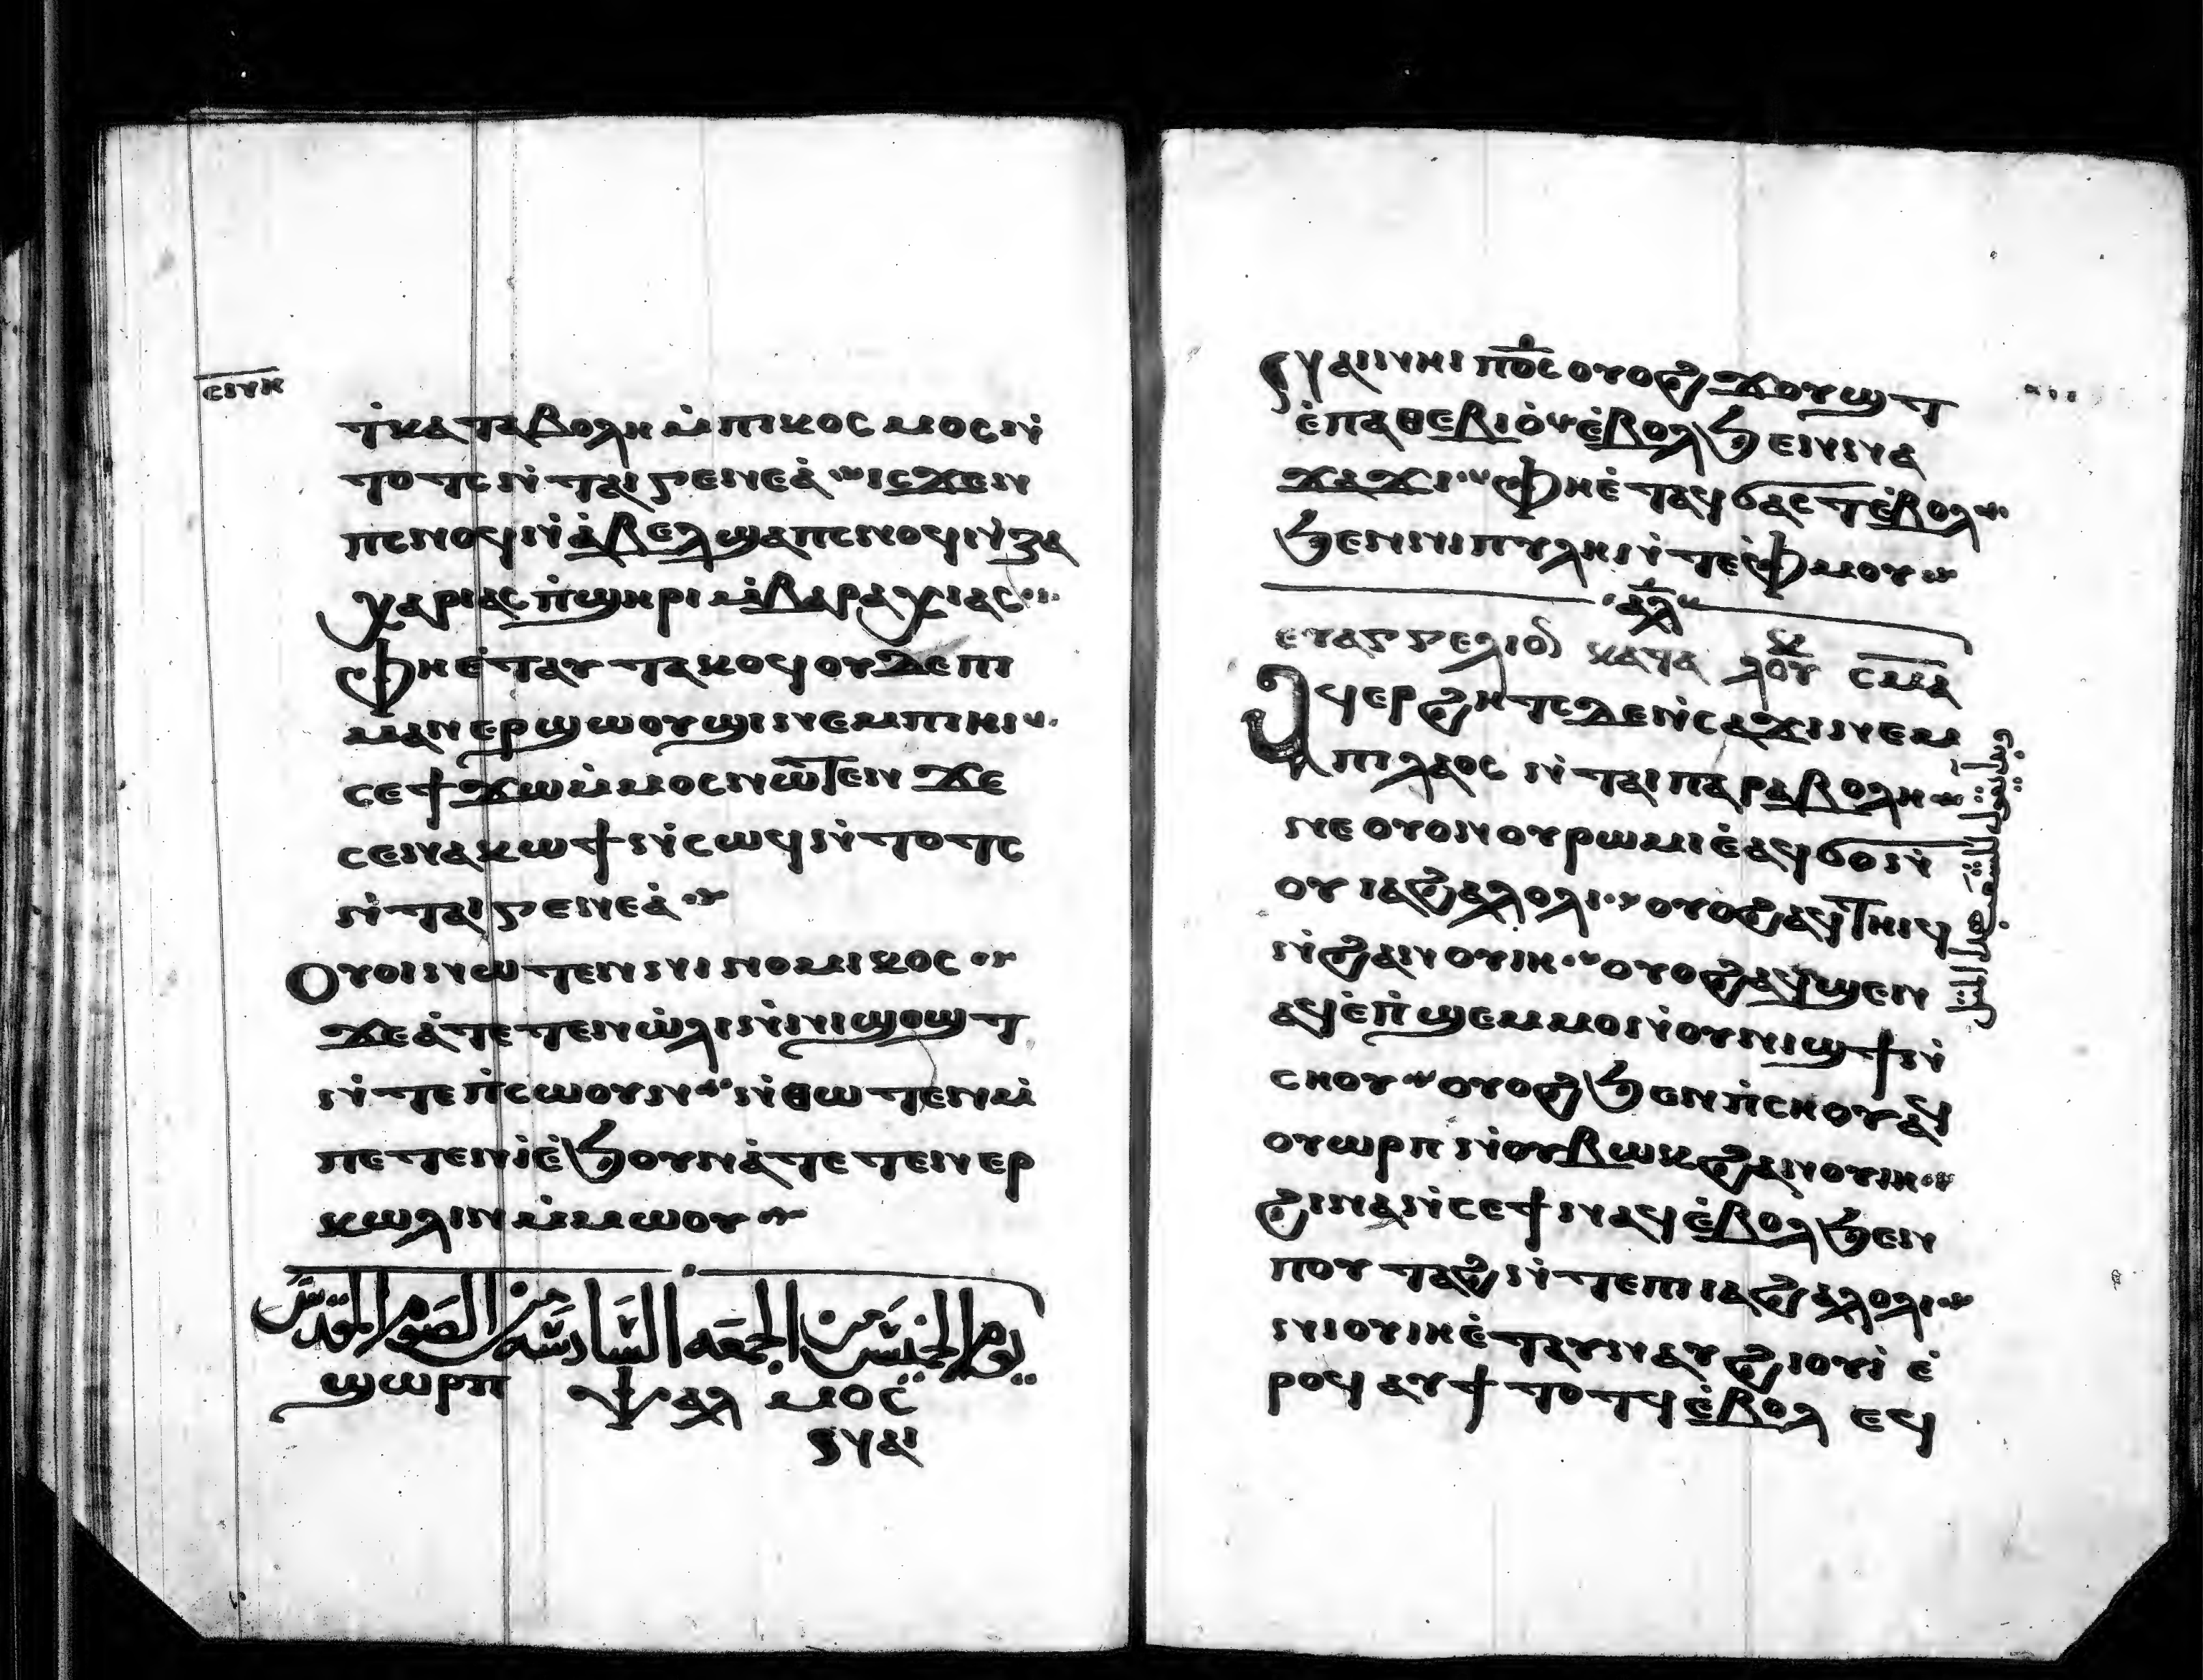 ⲥⲓⲛⲕ
ⲧ̇ⲕⲁⲧⲁⲃⲟⲗⲏ ⲙ̇ⲡⲓⲕⲟⲥⲙⲟⲥ ⲛ̇
ⲧⲟⲧⲥ ⲛ̇ⲧⲁⲓⲅⲉⲛⲉⲁ̇ ⲓⲥϫⲉⲛ
ⲡⲥⲛⲟϥ ⲛ̇ⲁ̇ⲃⲉⲗ ϣⲁⲡⲥⲛⲟϥ ⲛ̇ⲍⲁ
ⲭⲁⲣⲓⲁⲥ ⲡ̇ϣⲏⲣⲓ ⲙ̇ⲃⲁⲣⲁⲭⲓⲁⲥ
ⲫⲏⲉ̇ⲧⲁⲩⲧⲁⲕⲟϥ ⲟⲩⲇⲉ ⲡⲓ
ⲙⲁⲛⲉⲣϣⲱⲟⲩϣⲓ ⲛⲉⲙ ⲡⲓⲏⲓ
ⲥⲉ ϯϫⲱ ⲙ̇ⲙⲟⲥ ⲛⲱⲧⲉⲛ ϫⲉ
ⲥⲉⲛⲁⲕⲱϯ ⲛ̇ⲥⲱϥ ⲛ̇ⲧⲟⲧⲥ
ⲛ̇ⲧⲁⲓⲅⲉⲛⲉⲁ̇
Ⲟⲩⲟⲓ ⲛⲱⲧⲉⲛ ⲛⲓⲛⲟⲙⲓⲕⲟⲥ
ϫⲉ ⲁ̇ⲧⲉⲧⲉⲛⲱ̇ⲗⲓ ⲛ̇ⲛⲓϣⲟϣⲧ
ⲛ̇ⲧⲉ ⲡ̇ⲥⲱⲟⲩⲛ ⲛ̇ⲑⲱⲧⲉⲛ ⲙ̇
ⲡⲉⲧⲉⲛⲓ̇ ⲉ̇ϧⲟⲩⲛ ⲁ̇ⲧⲉⲧⲉⲛⲉⲣ
ⲕⲱⲗⲓⲛ ⲙ̇ⲙⲱⲟⲩ
يوم الخميس من الجمعه السادسه من الصوم المقدس
ϣⲱⲣⲡ ⲯⲁⲗⲙⲟⲥ
ⲛⲁⲓ
ⲛⲁⲓ ⲛⲏⲓ ⲡ̅ⲟ̅ⲥ̅ ⲟⲩⲟϩ ϫⲟⲩϣⲧ
ⲉ̇ⲡⲁⲑⲉⲃⲓⲟ̇ ⲉ̇ⲃⲟⲗ ϧⲉⲛ ⲛⲁ
ϫⲁϫⲓ ⲫⲏⲉ̇ⲧⲁϥϭⲁⲥⲧ ⲉ̇ⲃⲟⲗ
ϧⲉⲛ ⲛⲓⲡⲩⲗⲏ ⲛ̇ⲧⲉ ⲫ̇ⲙⲟⲩ
ⲁⲗ
ⲉⲩⲁⲅⲅⲉⲗⲓⲟ ⲕⲁⲧⲁ ⲗⲟⲩⲕ ⲥⲙⲁ
Ⲁϥⲉⲣϩⲏⲧⲥ ⲇⲉ ⲛ̇ⲥⲁϫⲓ ⲛⲉⲙ
ⲡⲓⲗⲁⲟⲥ ⲛ̇ⲧⲁⲓⲡⲁⲣⲁⲃⲟⲗⲏ
ⲛⲉ ⲟⲩⲟⲛ ⲟⲩⲣⲱⲙⲓ ⲉ̇ⲁϥϭⲟ ⲛ̇
ⲟⲩⲓⲁϩⲁⲗⲟⲗⲓ ⲟⲩⲟϩ ⲁϥⲧⲏⲓϥ
ⲛ̇ϩⲁⲛⲟⲩⲓⲏ ⲟⲩⲟϩ ⲁϥϣⲉⲛ
ⲁϥ ⲉ̇ⲡ̇ϣⲉⲙⲙⲟ ⲛ̇ⲟⲩⲛⲓϣϯ ⲛ̇
ⲥⲏⲟⲩ ⲟⲩⲟϩ ϧⲉⲛ ⲡ̇ⲥⲏⲟⲩ ⲁϥ
ⲟⲩⲱⲣⲡ ⲛ̇ⲟⲩⲃⲱⲕ ϩⲁ ⲛⲓⲟⲩⲓⲏ
ϩⲓⲛⲁ ⲛ̇ⲥⲉϯ ⲛⲁϥ ⲉ̇ⲃⲟⲗ ϧⲉⲛ
ⲡⲟⲩⲧⲁϩ ⲛ̇ⲧⲉ ⲡⲓⲓⲁϩⲁⲗⲟⲗⲓ
ⲛⲓⲟⲩⲓⲏ ⲉ̇ⲧⲁⲩⲛⲁⲩ ϩⲓⲟⲩⲓ̇ ⲉ̇
ⲣⲟϥ ⲁⲩϯ ⲧⲟⲧϥ ⲉ̇ⲃⲟⲗ ⲉϥ